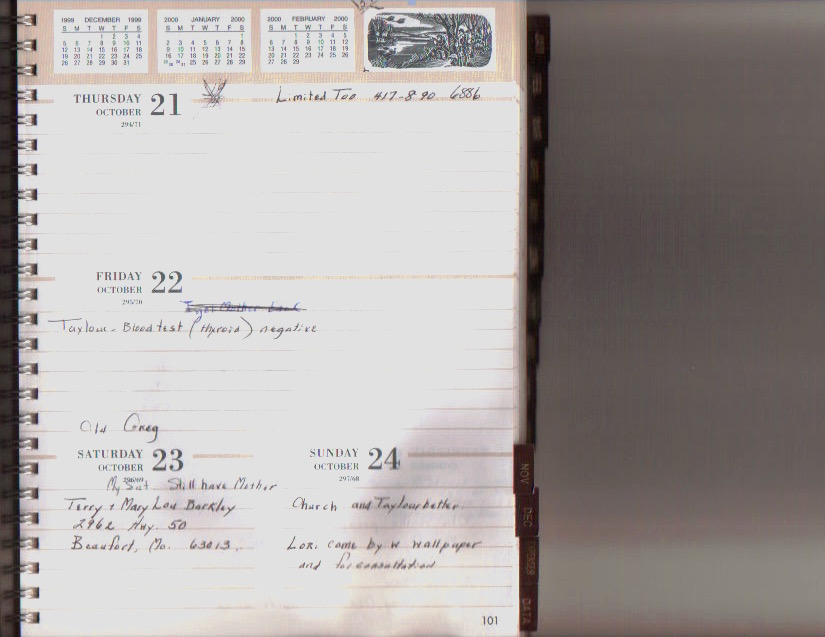 1999 DECEMBER 1999
S M T W T F S
1 2 3 4
5 6 7 8 9 10 11
12 13 14 15 16 17 18
19 20 21 22 23 24 25
26 27 28 29 30 31
2000 JANUARY 2000
S M T W T F S
1
2 3 4 5 6 7 8
9 10 11 12 13 14 15
16 17 18 19 20 21 22
23/30 24/31 25 26 27 28 29
2000 FEBRUARY 2000
S M T W T F S
1 2 3 4 5
6 7 8 9 10 11 12
13 14 15 16 17 18 19
20 21 22 23 24 25 26
27 28 29
THURSDAY 21
OCTOBER
294/71
Limited Too 417-890 6886
FRIDAY 22
OCTOBER
295/70
Taylour - Blood test (thyroid) negative
Old Greg
SATURDAY 23
OCTOBER
296/69
My Sat. Still have Mother
Terry + Mary Lou Barkley
2962 Hwy. 50
Beaufort, Mo. 63013
SUNDAY 24
OCTOBER
297/68
Church and Taylour better
Lori come by w wallpaper
and for consultation
101
NOV
DEC
DATA